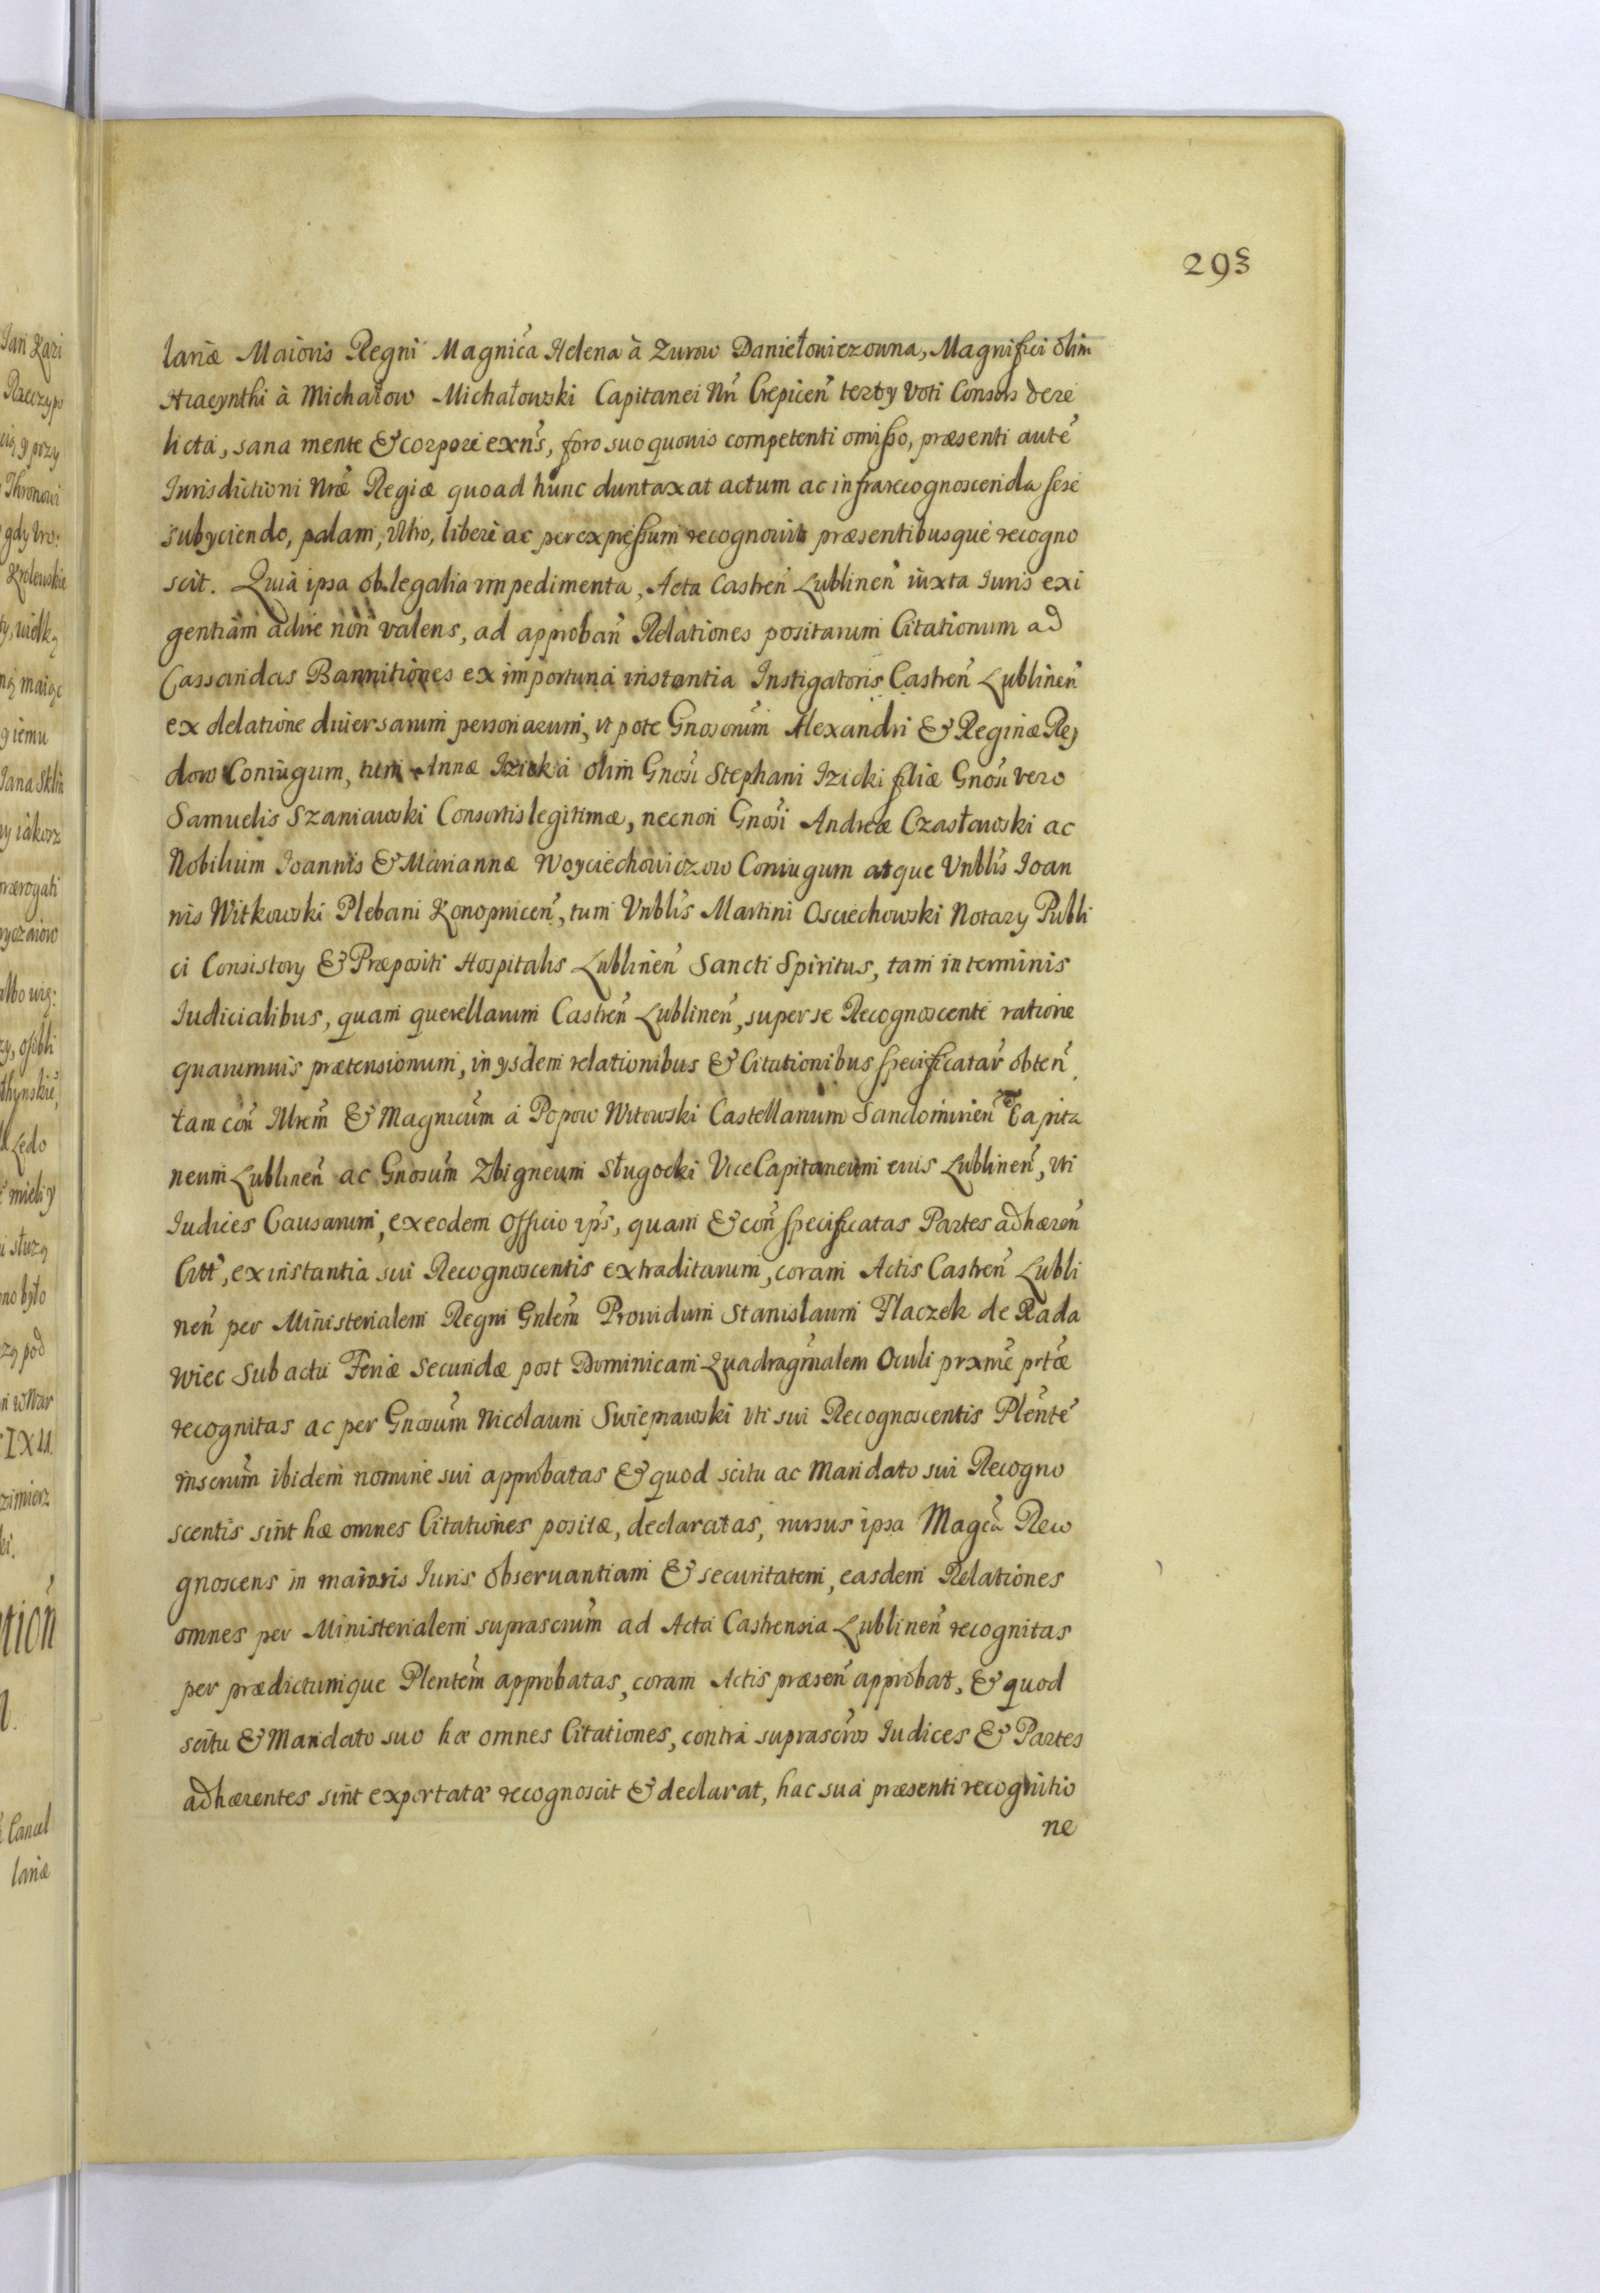 293
lariæ Maioris Regni Magnica Helena à Zurow Daniełowiczowna, Magnifici olim
Hiacynthi à Michałow Michałowski Capitanei Nrî Crepicen̄ tertÿ Voti Consors dere
licta, sana mente & corpore exn̄s, foro suo quovis competenti omisso, præsenti autē
Iurisdictioni Nræ Regiæ quoad hunc duntaxat actum ac infrarecognoscenda sese
subÿciendo, palam, Vltro, liberè ac per expressum recognovit præsentibusque recogno
scit. Quià ipsa ob legalia impedimenta, Acta Castren̄ Lublinen̄ iuxta Iuris exi
gentiam adire non valens, ad approban̄ Relationes positarum Citationum ad
Cassandas Bannitiones ex importuna instantia Instigatoris Castren̄ Lublinen̄
ex delatione diversarum personarum, vt pote Gnosorum̄ Alexandri & Reginæ Rey
dow Coniugum, tum Annæ Izicka olim Gnosi Stephani Izicki filiæ Gnosi vero
Samuelis Szaniawski Consortis legitimæ, necnon Gnosi Andreæ Czasławski ac
Nobilium Ioannis & Mariannæ Woyciechowiczow Coniugum atque Vnblis Ioan
nis Witkowski Plebani Konopnicen̄, tum Vnblis Martini Osciechowski Notarÿ Publi
ci Consistorÿ & Præpositi Hospitalis Lublinen̄ Sancti Spiritus, tam in terminis
Iudicialibus, quam querellarum Castren̄ Lublinen̄, super se Recognoscente ratione
quarumvis prætensionum, in ÿsdem relationibus & Citationibus specificatar̄ obten̄
tam con̄ Illrem̄ & Magnicum̄ à Popow Witowski Castellanum Sandomirien̄ Capita
neum Lublinen̄ ac Gnosum̄ Zbigneum Sługocki ViceCapitaneum eius Lublinen̄, vti
Iudices Causarum, ex eodem Officio ips̄, quam & con̄ specificatas Partes adhæren̄
Citt̄, ex instantia sui Recognoscentis extraditarum, coram Actis Castren̄ Lubli
nen̄ per Ministerialem Regni Gnlem̄ Providum Stanislaum Tlaczek de Rada
wiec sub actu Feriæ secundæ post Dominicam Quadragmalem̄ Oculi pxmē prtæ
recognitas ac per Gnosum̄ Nicolaum Swieprawski vti sui Recognoscentis Plentē
inscrum̄ ibidem nomine sui approbatas & quod scitu ac Mandato sui Recogno
scentis sint hæ omnes Citationes positæ, declaratas, rursus ipsa Magca Reco
gnoscens in maioris Iuris observantiam & securitatem, easdem Relationes
omnes per Ministerialem suprascrum̄ ad Acta Castrensia Lublinen̄ recognitas
per prædictumque Plentem̄ approbatas, coram Actis præsen̄ approbat, & quod
scitu & Mandato suo hæ omnes Citationes, contra suprascros̄ Iudices & Partes
adhærentes sint exportatæ recognoscit & declarat, hac sua præsenti recognitio
ne